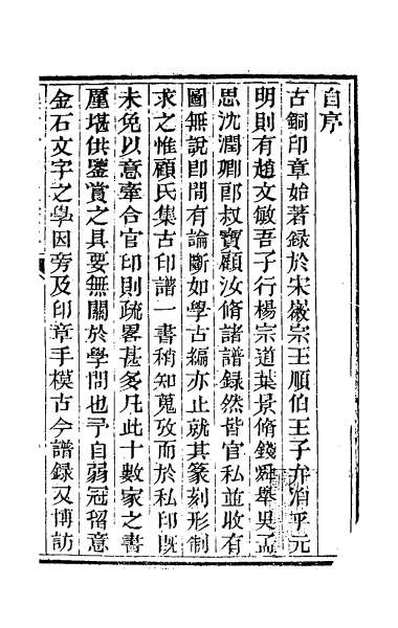 自序
古銅印章始著録於宋徽宗王順伯王子弁洎乎元
明則有趙文敏吾子行楊宗道葉景脩錢舜舉吳孟
思沈潤卿郎叔寶顧汝脩諸譜録然皆官私並收有
圖無說卽間有論斷如學古編亦止就其篆刻形制
求之惟顧氏集古印譜一書稍知蒐攷而於私印旣
未免以意牽合官印則疏畧甚多凡此十數家之書
厪堪供鑒賞之具要無關於學問也予自弱冠留意
金石文字之學因旁及印章手模古今譜録又博訪